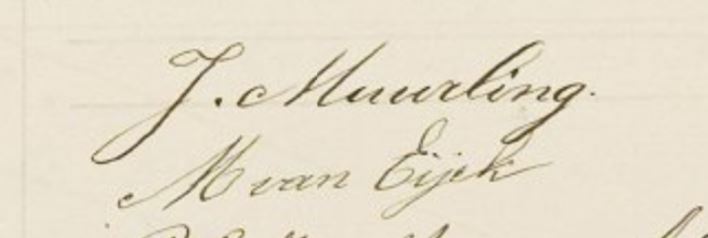 J. Muurling.
M van Eijck